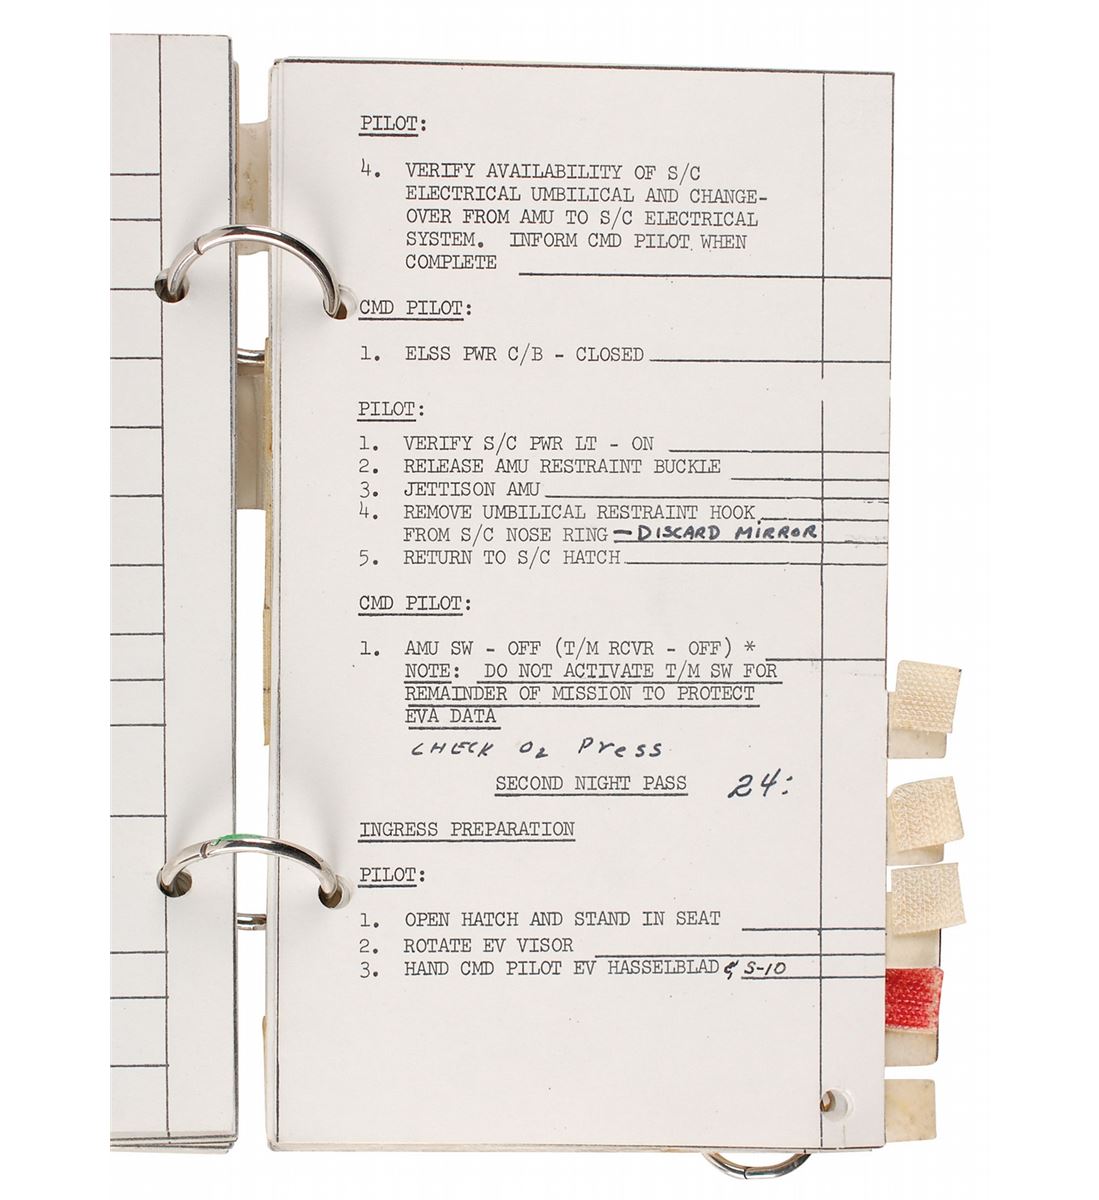 PILOT:
4. VERIFY AVAILABILITY OF S/C
ELECTRICAL UMBILICAL AND CHANGE-
OVER FROM AMU TO S/C ELECTRICAL
SYSTEM. INFORM CMD PILOT WHEN
COMPLETE
CMD PILOT:
1. ELSS PWR C/B - CLOSED
PILOT:
1. VERIFY S/C PWR LT - ON
2. RELEASE AMU RESTRAINT BUCKLE
3. JETTISON AMU
4. REMOVE UMBILICAL RESTRAINT HOOK
FROM S/C NOSE RING - DISCARD MIRROR
5. RETURN TO S/C HATCH
CMD PILOT:
1. AMU SW - OFF (T/M RCVR - OFF) *
NOTE: DO NOT ACTIVATE T/M SW FOR
REMAINDER OF MISSION TO PROTECT
EVA DATA
CHECK O2 Press
SECOND NIGHT PASS 24:
INGRESS PREPARATION
PILOT:
1. OPEN HATCH AND STAND IN SEAT
2. ROTATE EV VISOR
3. HAND CMD PILOT EV HASSELBLAD & S-10